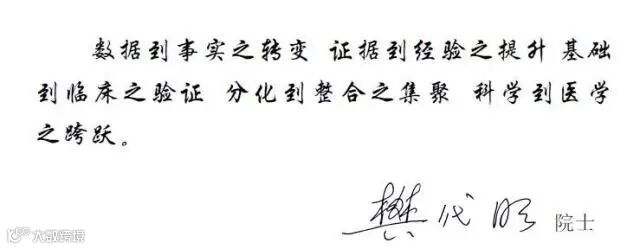 数据到事实之转变 证据到经验之提升 基础
到临床之验证 分化到整合之集聚 科学到医学
之跨跃。
樊代明 院士
大数跨境